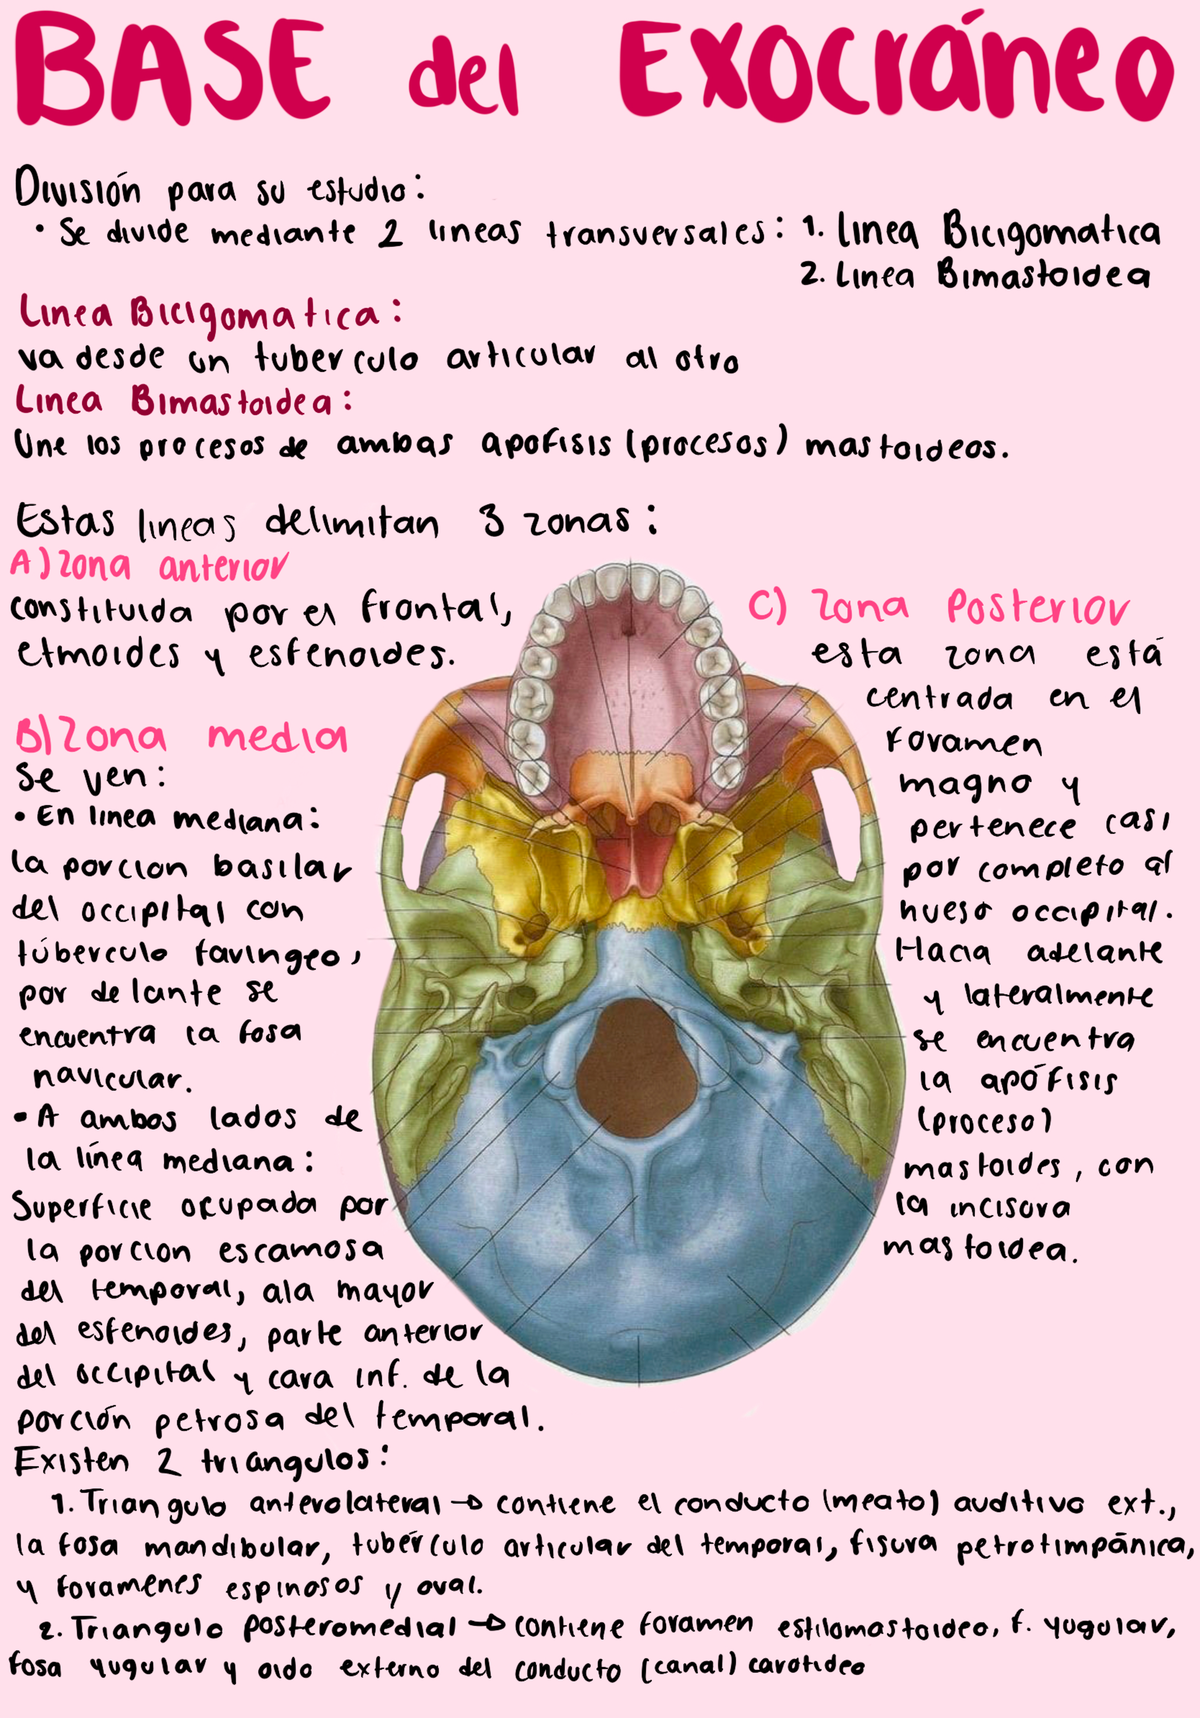 BASE del Exocráneo
División para su estudio:
• Se divide mediante 2 lineas transversales: 1. linea Bicigomatica
2. Linea Bimastoidea
Linea Bicigomatica:
va desde un tuberculo articular al otro
Linea Bimastoidea:
Une los procesos de ambas apofisis (procesos) mastoideos.
Estas lineas delimitan 3 zonas:
A) Zona anterior
constituida por el frontal,
etmoides y esfenoides.
B) Zona media
Se ven:
• En linea mediana:
la porcion basilar
del occipital con
túberculo faringeo,
por delante se
encuentra la fosa
navicular.
• A ambos lados de
la línea mediana:
Superficie ocupada por
la porcion escamosa
del temporal, ala mayor
del esfenoides, parte anterior
del occipital y cara inf. de la
porción petrosa del temporal.
C) Zona Posterior
esta zona está
centrada en el
Foramen
magno y
pertenece casi
por completo al
hueso occipital.
Hacia adelante
y lateralmente
se encuentra
la apófisis
(proceso)
mastoides, con
la incisura
mastoidea.
Existen 2 triangulos:
1. Triangulo anterolateral → contiene el conducto (meato) auditivo ext.,
la fosa mandibular, tubérculo articular del temporal, fisura petrotimpánica,
y foramenes espinosos y oval.
2. Triangulo posteromedial → contiene foramen estilomastoideo, f. yugular,
fosa yugular y oido externo del conducto (canal) carotideo